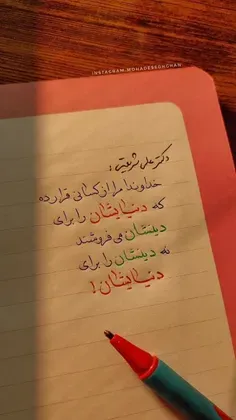 INSTAGRAM.MOHADESEONCHAN
دکتر علی شریعتی:
خداوندا مرا از کسانی قرار ده
که دنیایشان را برای
دینشان می فروشند
نه دینشان را برای
دنیایشان!